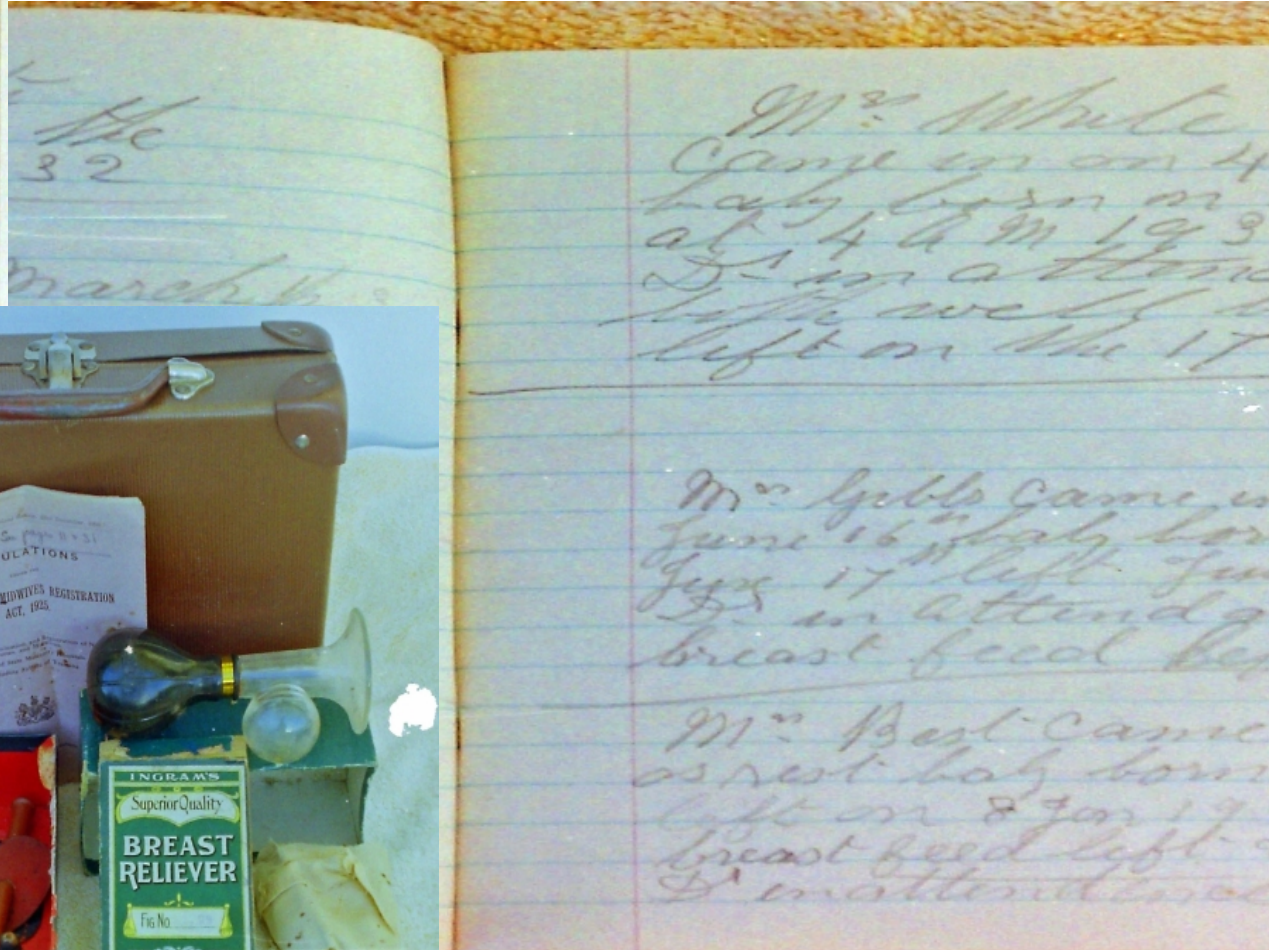 the
32
March
Mrs White
came in on 4
baby born on
at 4 A M 193
Dr in attend
both well
left on the 17
Mrs Gibbs came in
June 16th baby bor
June 17th left Jun
Dr in attend
breast feed
Mrs Best came
as rest baby born
left on 8 Jan 19
breast feed left
Dr in attendence
See page 11 & 31
ULATIONS
MIDWIVES REGISTRATION
ACT, 1925.
INGRAM'S
Superior Quality
BREAST
RELIEVER
FIG No